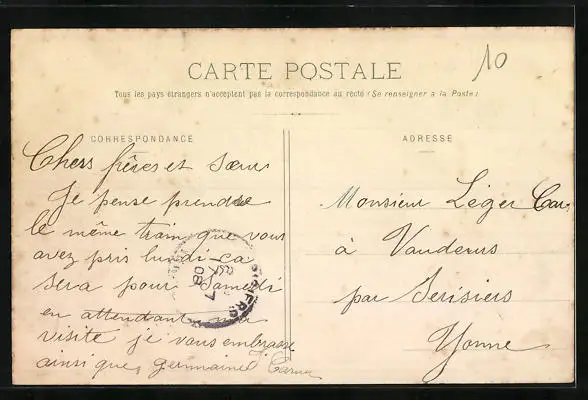 10
CARTE POSTALE
Tous les pays étrangers n'acceptent pas la correspondance au recto (Se renseigner à la Poste)
CORRESPONDANCE
Chers frères et sœur
Je pense prendre
le même train que vous
avez pris lundi ca
sera pour Samedi
en attendant
visite je vous embrasse
ainsi que Germaine
7
08
ADRESSE
Monsieur Léger
à Vaudeurs
par Serisiers
Yonne